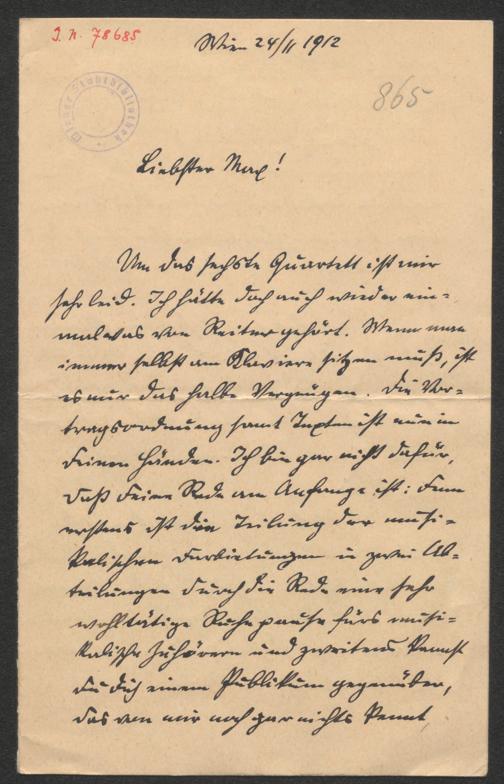 I. N. 78685
Wien 24/II 1912
865
Wiener Stadtbibliothek
Liebster Max!
Um das sechste Quartett ist mir
sehr leid. Ich hätte doch auch wieder ein-
mal was von Reiter gehört. Wenn man
immer selbst am Klaviere sitzen muß, ist
es nur das halbe Vergnügen. Die Vor-
tragsordnung samt Texten ist nun in
Deinen Händen. Ich bin gar nicht dafür,
daß Deine Rede am Anfange ist: denn
erstens ist die Teilung der musi-
kalischen Darbietungen in zwei Ab-
teilungen durch die Rede eine sehr
wohltätige Ruhepause fürs musi-
kalische Zuhören und zweitens kannst
Du Dich einem Publikum gegenüber,
das von mir noch gar nichts kennt